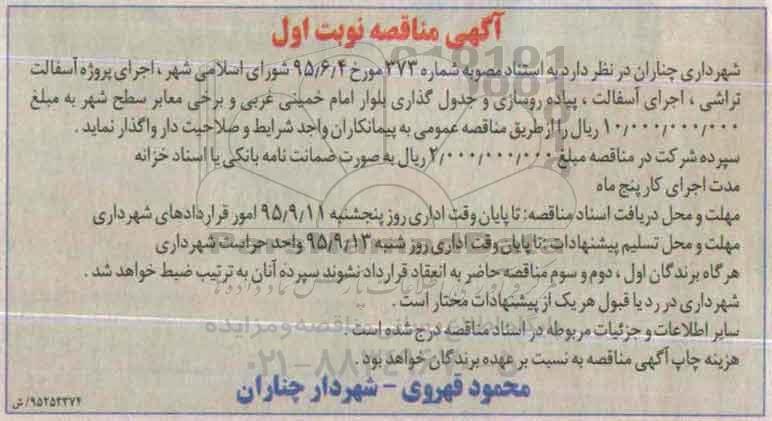 آگهی مناقصه نوبت اول
شهرداری چناران در نظر دارد به استناد مصوبه شماره ۳۷۳ مورخ ۹۵/۶/۴ شورای اسلامی شهر ، اجرای پروژه آسفالت
تراشی ، اجرای آسفالت ، پیاده روسازی و جدول گذاری بلوار امام خمینی غربی و برخی معابر سطح شهر به مبلغ
۱۰/۰۰۰/۰۰۰/۰۰۰ ریال را از طریق مناقصه عمومی به پیمانکاران واجد شرایط و صلاحیت دار واگذار نماید .
سپرده شرکت در مناقصه مبلغ ۲/۰۰۰/۰۰۰/۰۰۰ ریال به صورت ضمانت نامه بانکی یا اسناد خزانه
مدت اجرای کار پنج ماه
مهلت و محل دریافت اسناد مناقصه: تا پایان وقت اداری روز پنجشنبه ۹۵/۹/۱۱ امور قراردادهای شهرداری
مهلت و محل تسلیم پیشنهادات :تا پایان وقت اداری روز شنبه ۹۵/۹/۱۳ واحد حراست شهرداری
هرگاه برندگان اول ، دوم و سوم مناقصه حاضر به انعقاد قرارداد نشوند سپرده آنان به ترتیب ضبط خواهد شد .
شهرداری در رد یا قبول هر یک از پیشنهادات مختار است .
سایر اطلاعات و جزئیات مربوطه در اسناد مناقصه درج شده است .
هزینه چاپ آگهی مناقصه به نسبت بر عهده برندگان خواهد بود .
محمود قهروی – شهردار چناران
۹۵۲۵۲۳۷۴/ ش